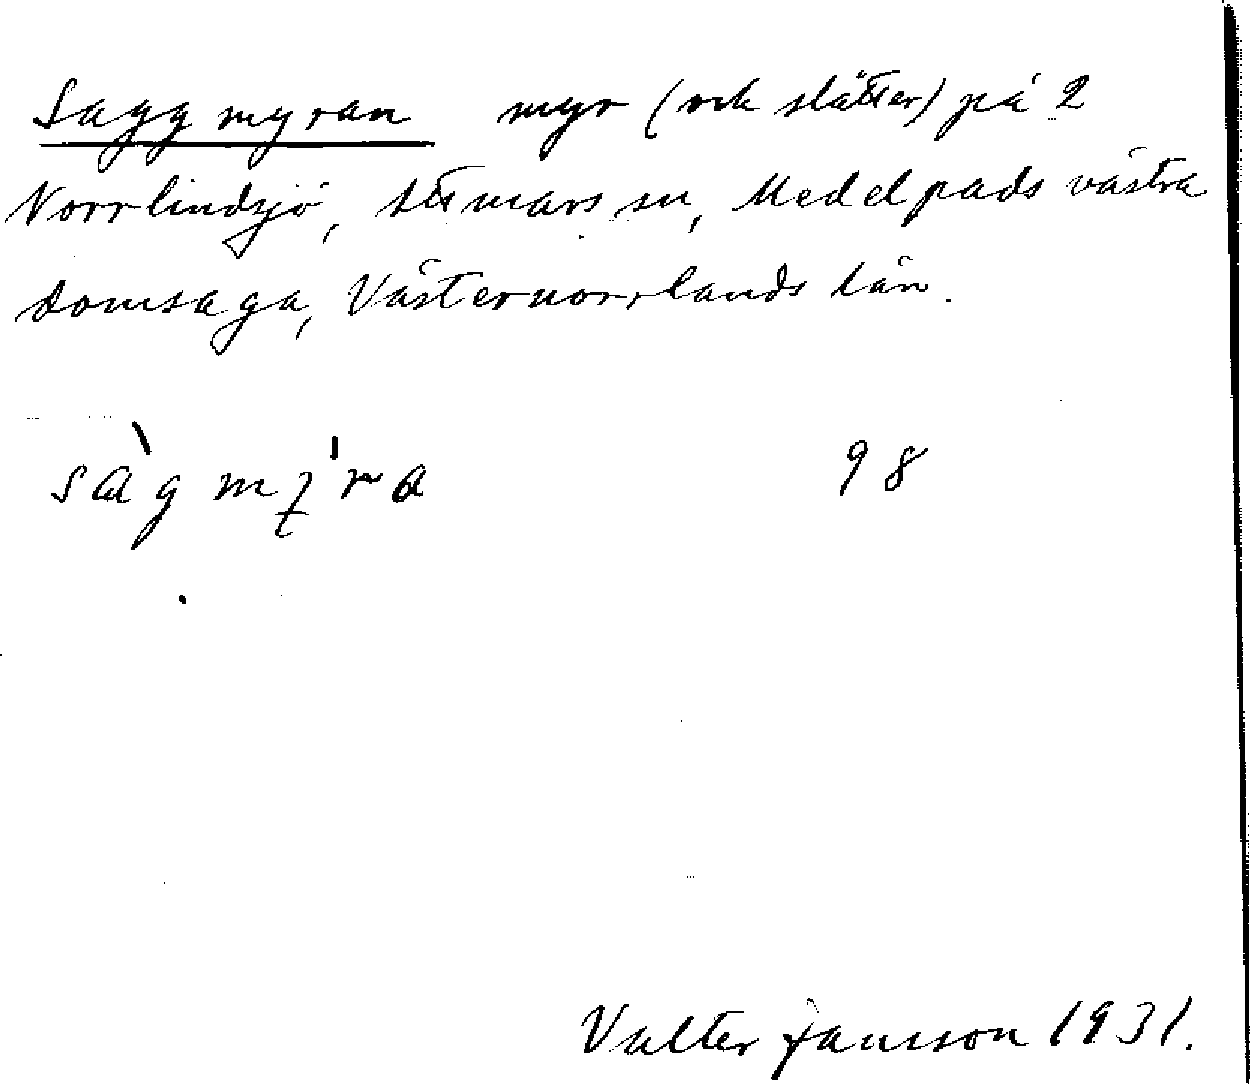 Saggmyran myr (och slåtter) på 2
Norrlindsjö, Attmars sn, Medelpads västra
domsaga, Västernorrlands län.
sàg my̍ra 98
Valter Jansson 1931.